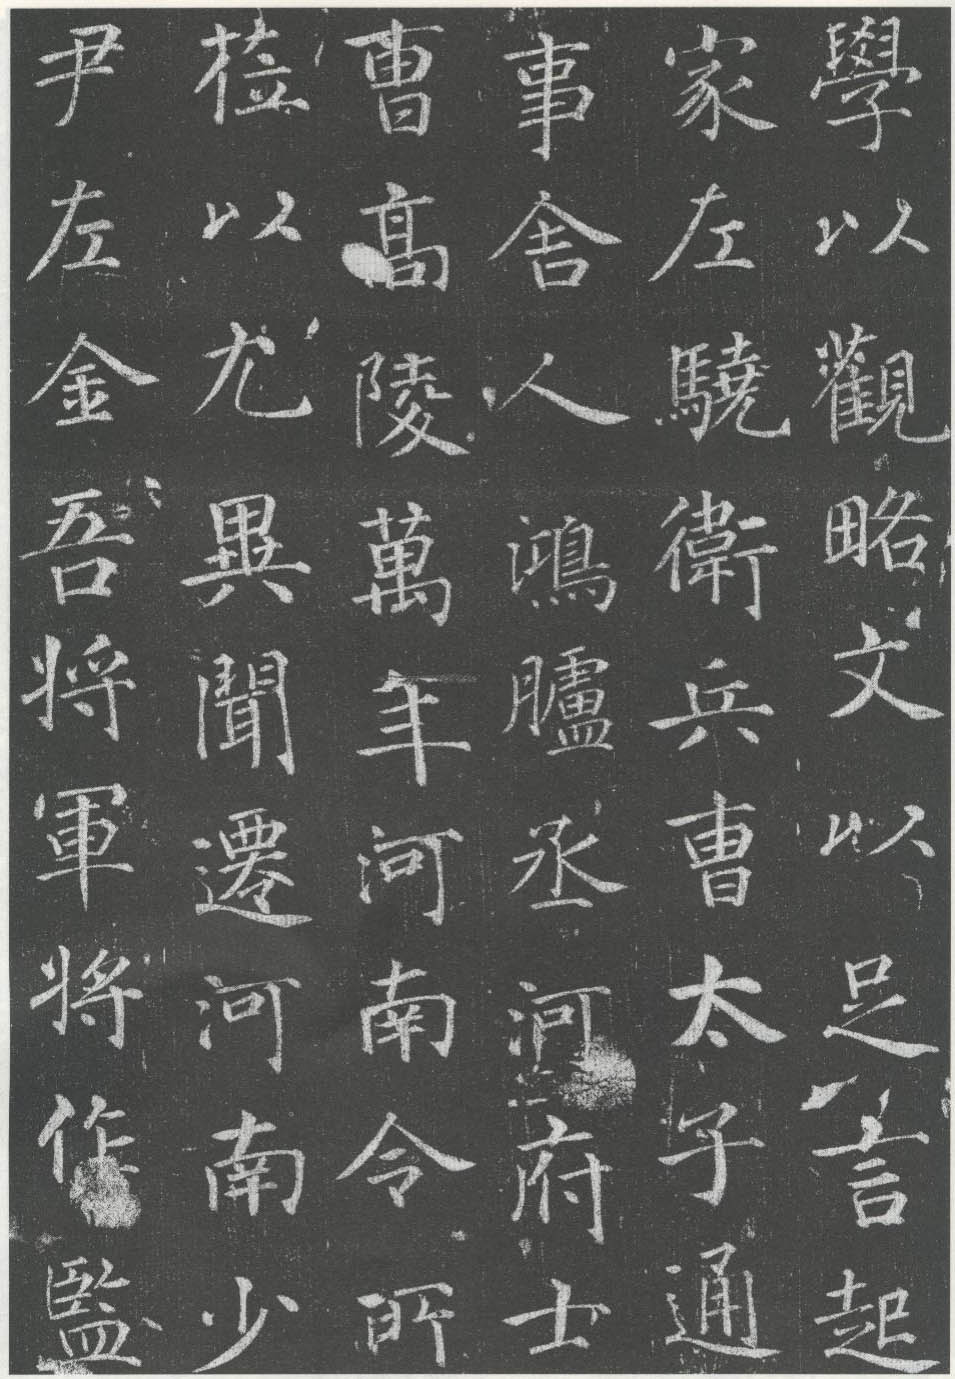 學以觀略文以足言起
家左驍衛兵曹太子通
事舍人鴻臚丞河府士
曹高陵萬年河南令所
莅以尤異聞遷河南少
尹左金吾将軍将作監